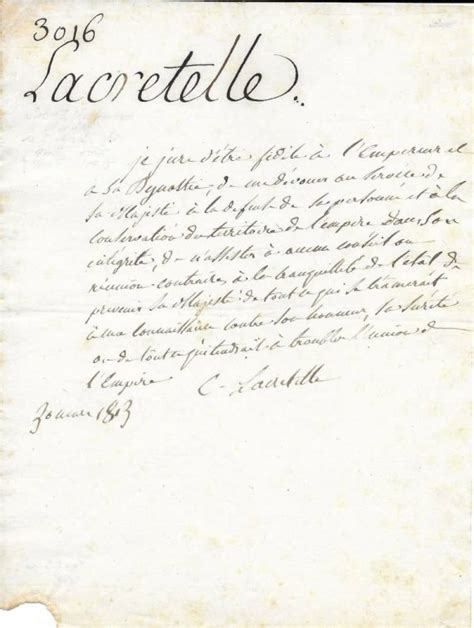 3016
Lacretelle
je jure d'être fidèle à l'Empereur et
a sa Dynastie, de me dévouer au service de
sa Majesté à la defense de sa personne et à la
conservation du territoire de l'empire dans son
intégrité, de n'assister à aucun conseil ou
réunion contraire à la tranquillité de l'etat, de
prevenir sa Majesté de tout ce qui se tramerait
à ma connaissance contre son honneur, sa sureté
ou de tout ce qui tendrait à troubler l'union de
l'Empire
C. Lacretelle
1813